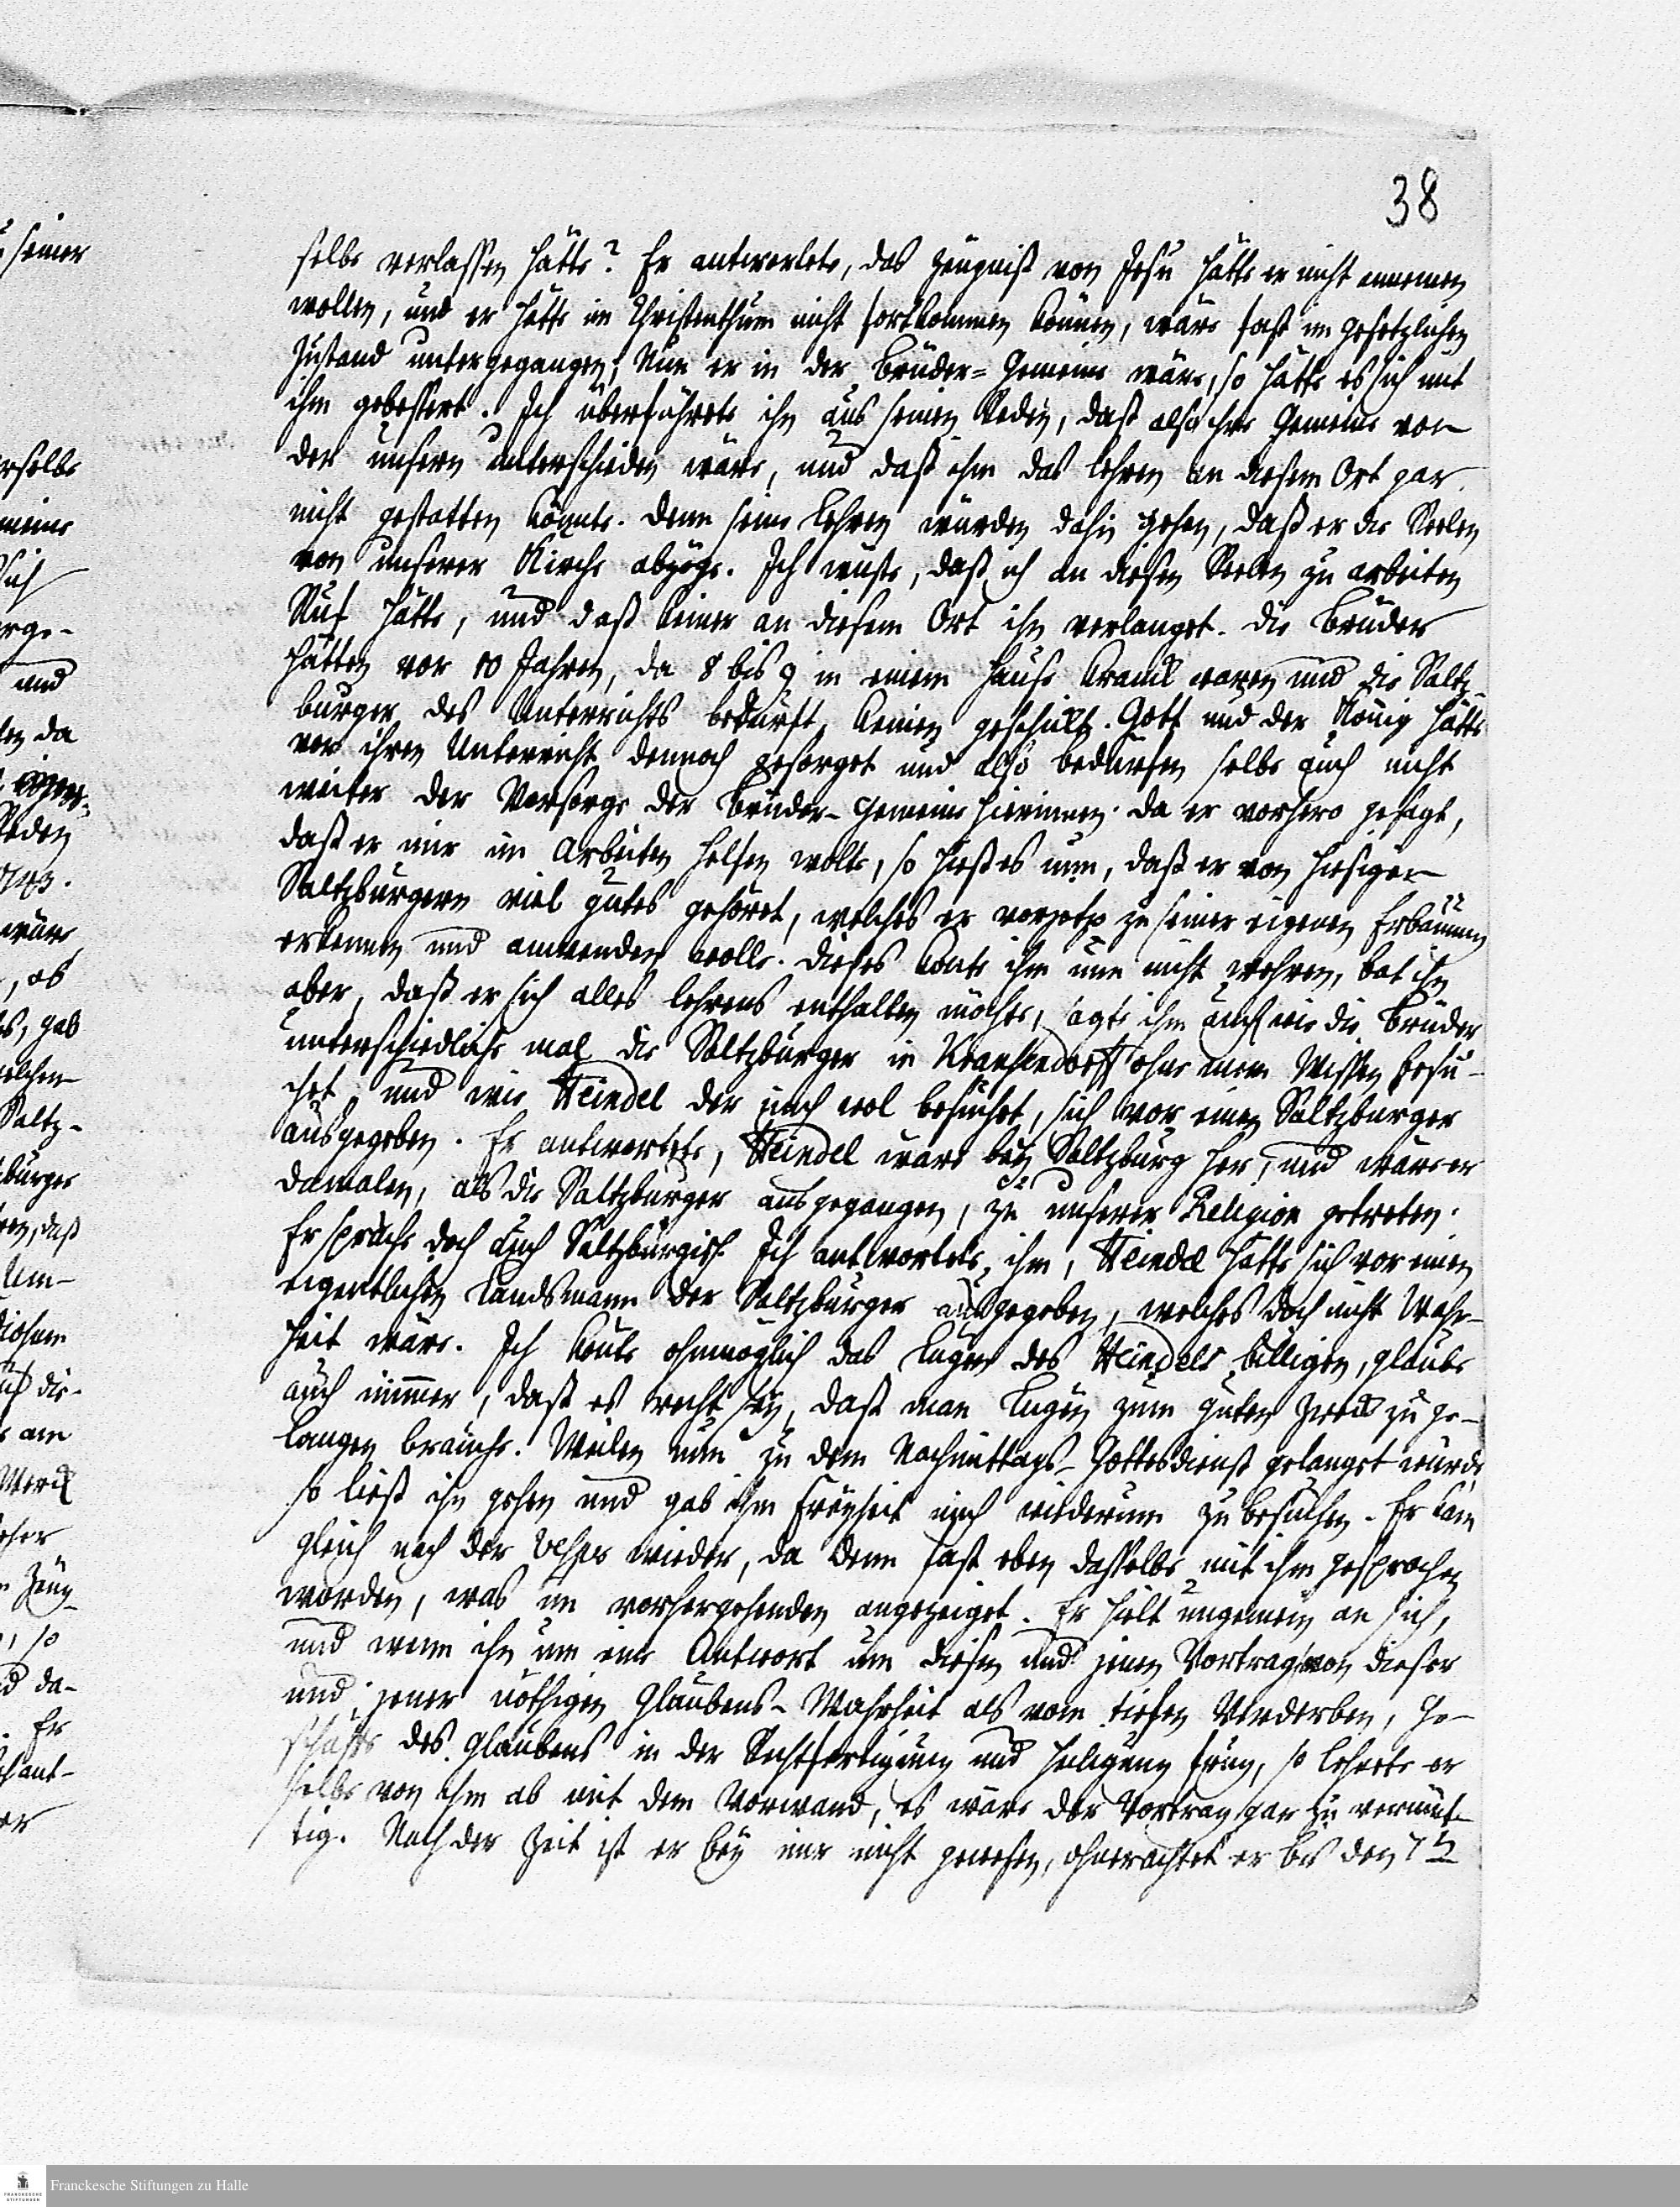 38
selbe verlassen hätte? Er antwortete, das Zeugniß von Jesu hätte er nicht annemen
wollen, und er hätte im Christenthum nicht fortkommen können, wäre fast im gesetzlichen
Zustand untergegangen; Nun er in der Brüder-Gemeine wäre, so hätte es sich mit
ihm gebessert. Ich überführete ihn aus seinen Reden, daß also ihre Gemeine von
der unsern unterschieden wäre, und daß ihm das lehren an diesem Ort gar
nicht gestatten könnte. Denn seine Lehren würden dahin gehen, daß er die Seelen
von unserer Kirche abzöge. Ich wüste, daß ich an diesen Seelen zu arbeiten
Ruf hätte, und daß keiner an diesem Ort ihn verlanget. Die Brüder
hätten vor 10 Jahren, da 8 bis 9 in einem Hause kranck waren und die Saltz-
burger des Unterrichts bedurft, keinen geschickt. Gott und der König hätte
vor ihren Unterricht dennoch gesorget und also bedürfen selbe auch nicht
weiter der Vorsorge der Brüder-Gemeine hierinnen. Da er vorhero gesagt,
daß er mir im Arbeiten helfen wolte, so hieß es nun, daß er von hiesigen
Saltzburgern viel gutes gehöret, welches er vorjetzo zu seiner eigenen Erbauung
erkennen und anwenden wolle. Dieses konte ihm nun nicht wehren, bat ihn
aber, daß er sich alles lehrens enthalten möchte, sagte ihm auch wie die Brüder
unterschiedliche mal die Saltzburger in ohne mein Wissen besu-
chet, und wie Heindel der mich wol besuchet, sich vor einen Saltzburger
ausgegeben. Er antwortete, Heindel wäre bey Saltzburg her, und wäre er
damalen, als die Saltzburger ausgegangen, zu unserer Religion getreten.
Er spräche doch auch Saltzburgisch. Ich antwortete ihm, Heindel hätte sich vor einen
eigentlichen Landsmann der Saltzburger ausgegeben, welches doch nicht Wahr-
heit wäre. Ich könte ohnmöglich das Lügen des Heindels billigen, glaube
auch nimmer, daß es recht sey, daß man Lügen zum guten Zweck zu ge-
langen brauche. Weilen nun zu dem Nachmittags-Gottesdienst gelanget wurde
so ließ ihn gehen und gab ihm Freyheit mich wiederum zu besuchen. Er kam
gleich nach der Vesper wieder, da denn fast eben dasselbe mit ihm gesprochen
worden, was im vorhergehenden angezeiget. Er hielt ungemein an sich,
und wenn ihn um eine Antwort um diesen und jenen Vortrag von dieser
und jener nöthigen Glaubens-Wahrheit als vom tiefen Verderben, Ge-
schäfte des Glaubens in der Rechtfertigung und Heiligung frug, so lehnte er
selbe von ihm ab mit dem Vorwand, es wäre der Vortrag gar zu vernünf-
tig. Nach der Zeit ist er bey mir nicht gewesen, ohnerachtet er bis den 7ten
Franckesche Stiftungen zu Halle